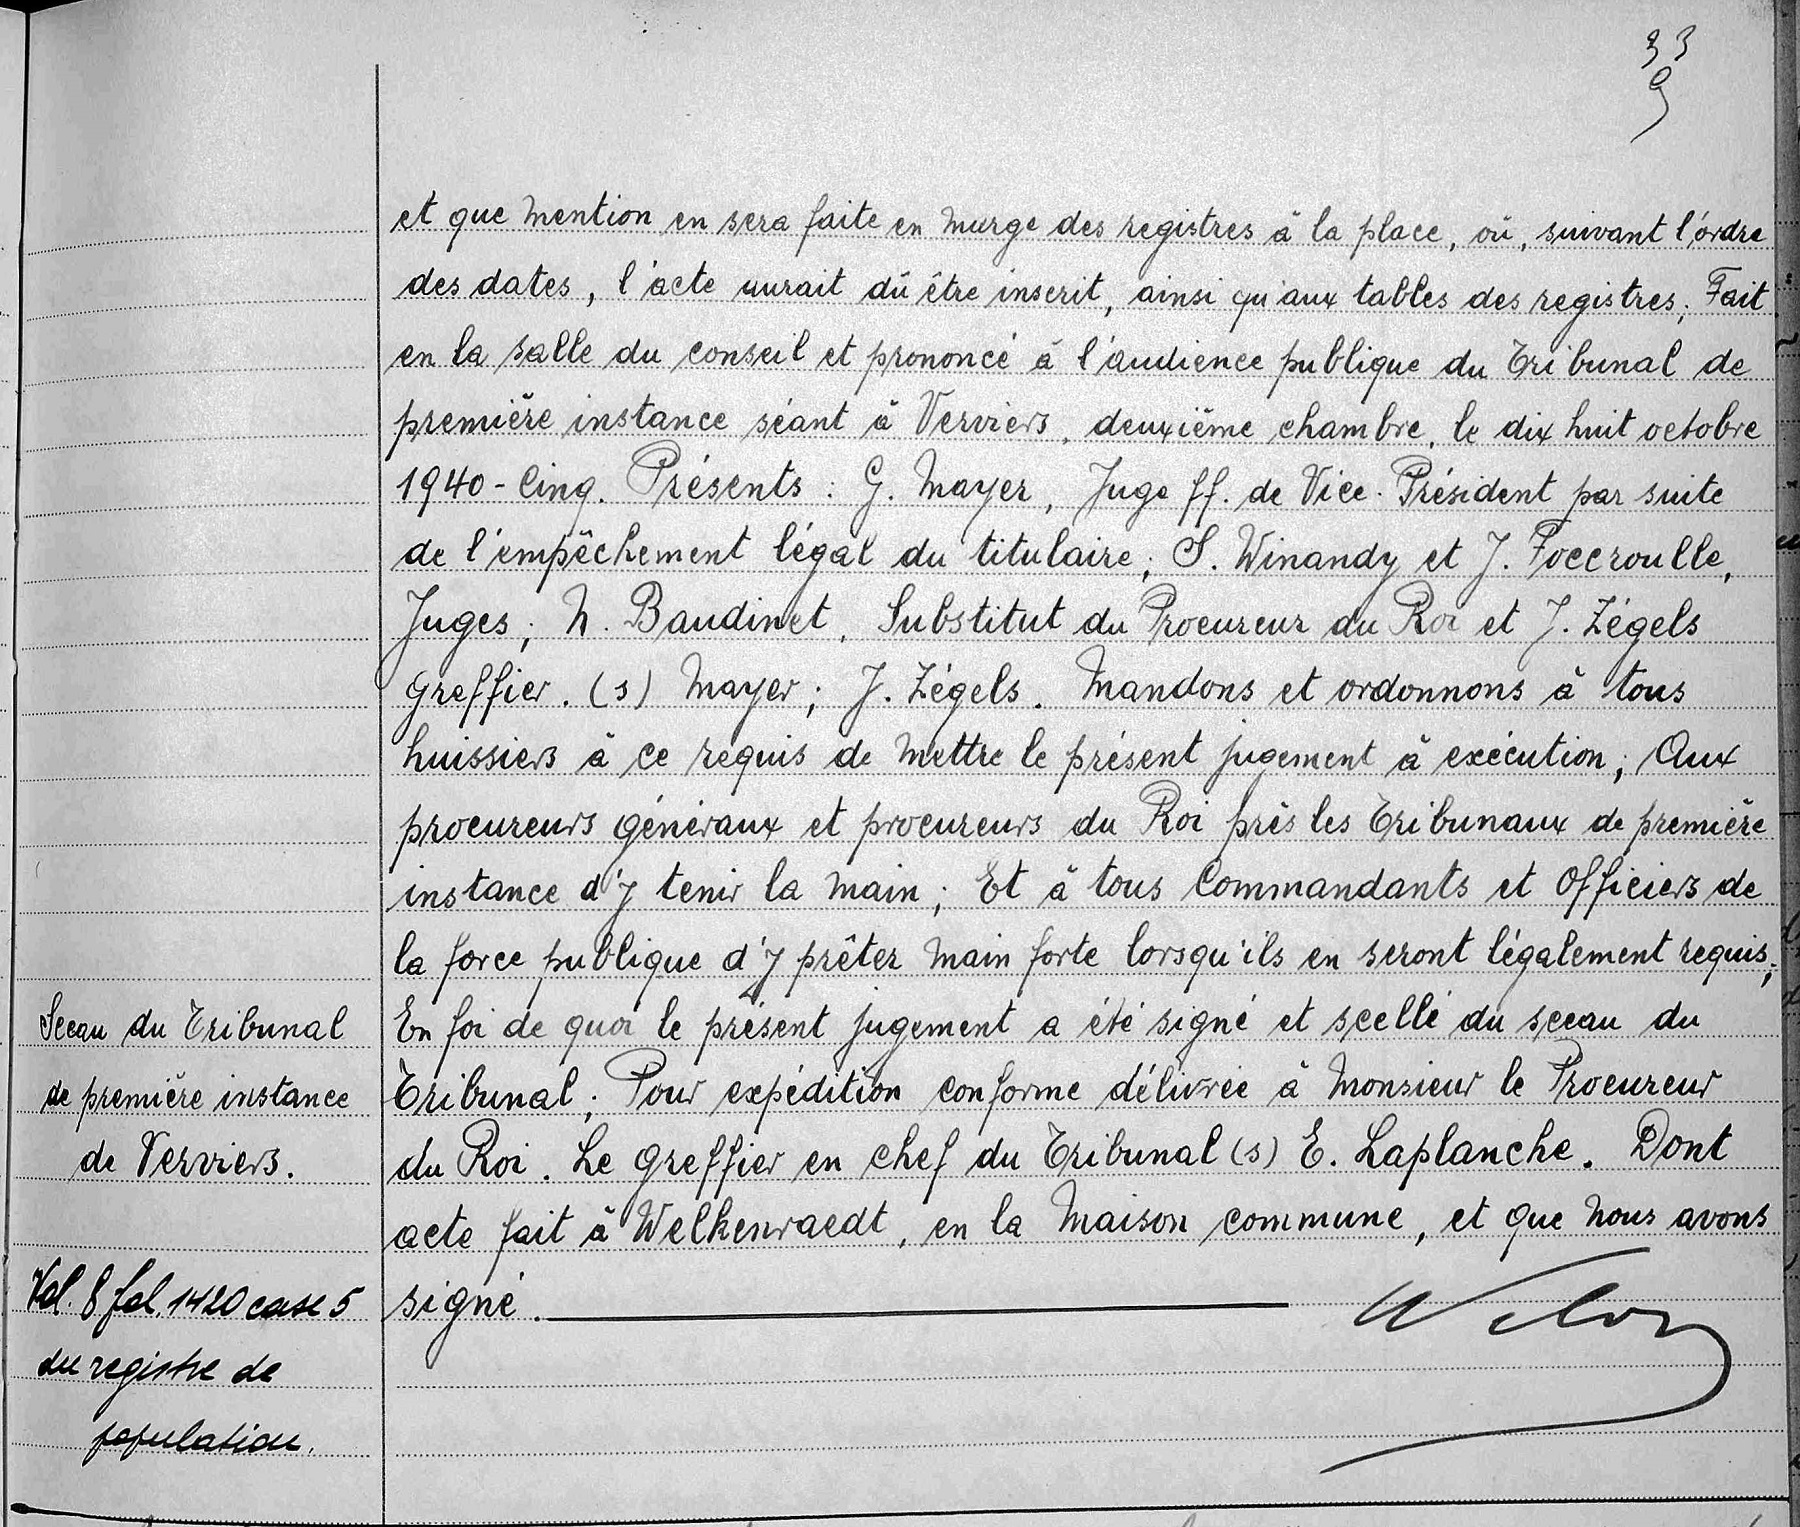 33
et que mention en sera faite en marge des registres à la place, où, suivant l'ordre
des dates, l'acte aurait dû être inscrit, ainsi qu'aux tables des registres; Fait
en la salle du conseil et prononcé à l'audience publique du Tribunal de
première instance séant à Verviers, deuxième chambre, le dix huit octobre
1940-Cinq. Présents : G. Mayer, Juge ff. de Vice-Président par suite
de l'empêchement légal du titulaire; S. Winandy et J. Foccroulle,
Juges; N. Baudinet, Substitut du Procureur du Roi et J. Zégels
Greffier. (s) Mayer; J. Zégels. Mandons et ordonnons à tous
huissiers à ce requis de mettre le présent jugement à exécution; Aux
procureurs généraux et procureurs du Roi près les Tribunaux de première
instance d'y tenir la main; Et à tous Commandants et Officiers de
la force publique d'y prêter main forte lorsqu'ils en seront légalement requis;
En foi de quoi le présent jugement a été signé et scellé du sceau du
Tribunal; Pour expédition conforme délivrée à Monsieur le Procureur
du Roi. Le Greffier en chef du Tribunal (s) E. Laplanche. Dont
acte fait à Welkenraedt, en la Maison commune, et que nous avons
signé.
Sceau du Tribunal
de première instance
de Verviers.
Vol. 8 fol. 1420 case 5
du registre de
population.